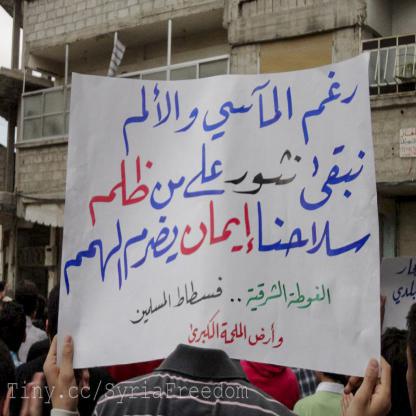 رغم المآسي والألم
نبقى نثور على من ظلم
سلاحنا إيمان يضرم الهمم
الغوطة الشرقية .. فسطاط المسلمين
وأرض الملحمة الكبرى
Tiny.cc/SyriaFreedom